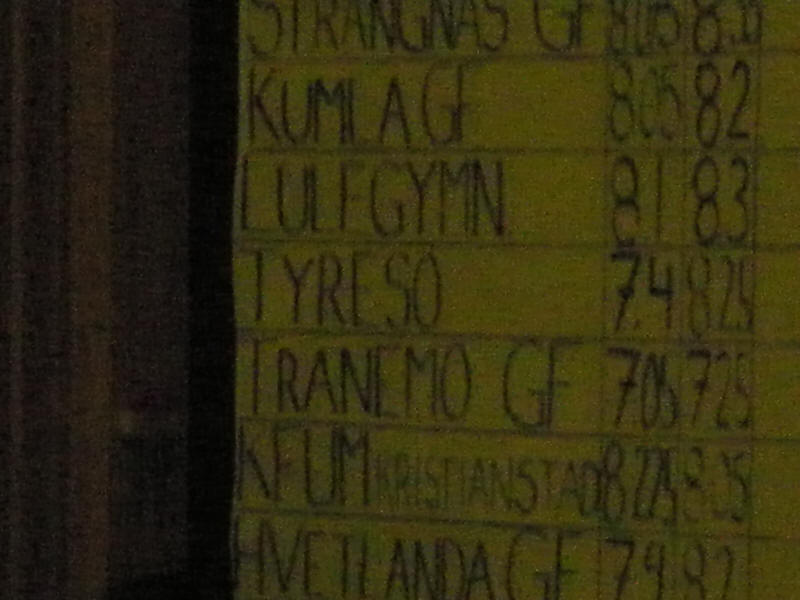 STRÄNGNÄS GF 8.05
KUMLA GF 8.05 8.2
LULEGYMN 8.1 8.3
TYRESÖ 7.4 8.25
TRANEMO GF 7.05 7.25
KFUM KRISTIANSTAD 8.225
HVETLANDA GF 7.9 8.2